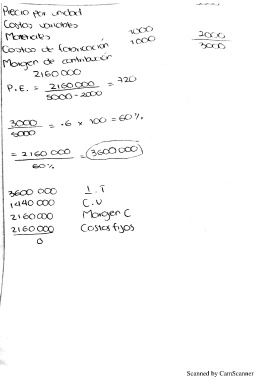 Precio por unidad
Costos variables
Materiales 1000 2000
Costos de fabricación 1000 3000
Margen de contribución
2160 000
P.E. = 2160000 / 5000-2000 = 720
3000 / 5000 = .6 x 100 = 60%
= 2160 000 / 60% = 3600000
3600 000 I.T
1440 000 C.V
2160000 Margen C
2160000 Costos fijos
0
Scanned by CamScanner